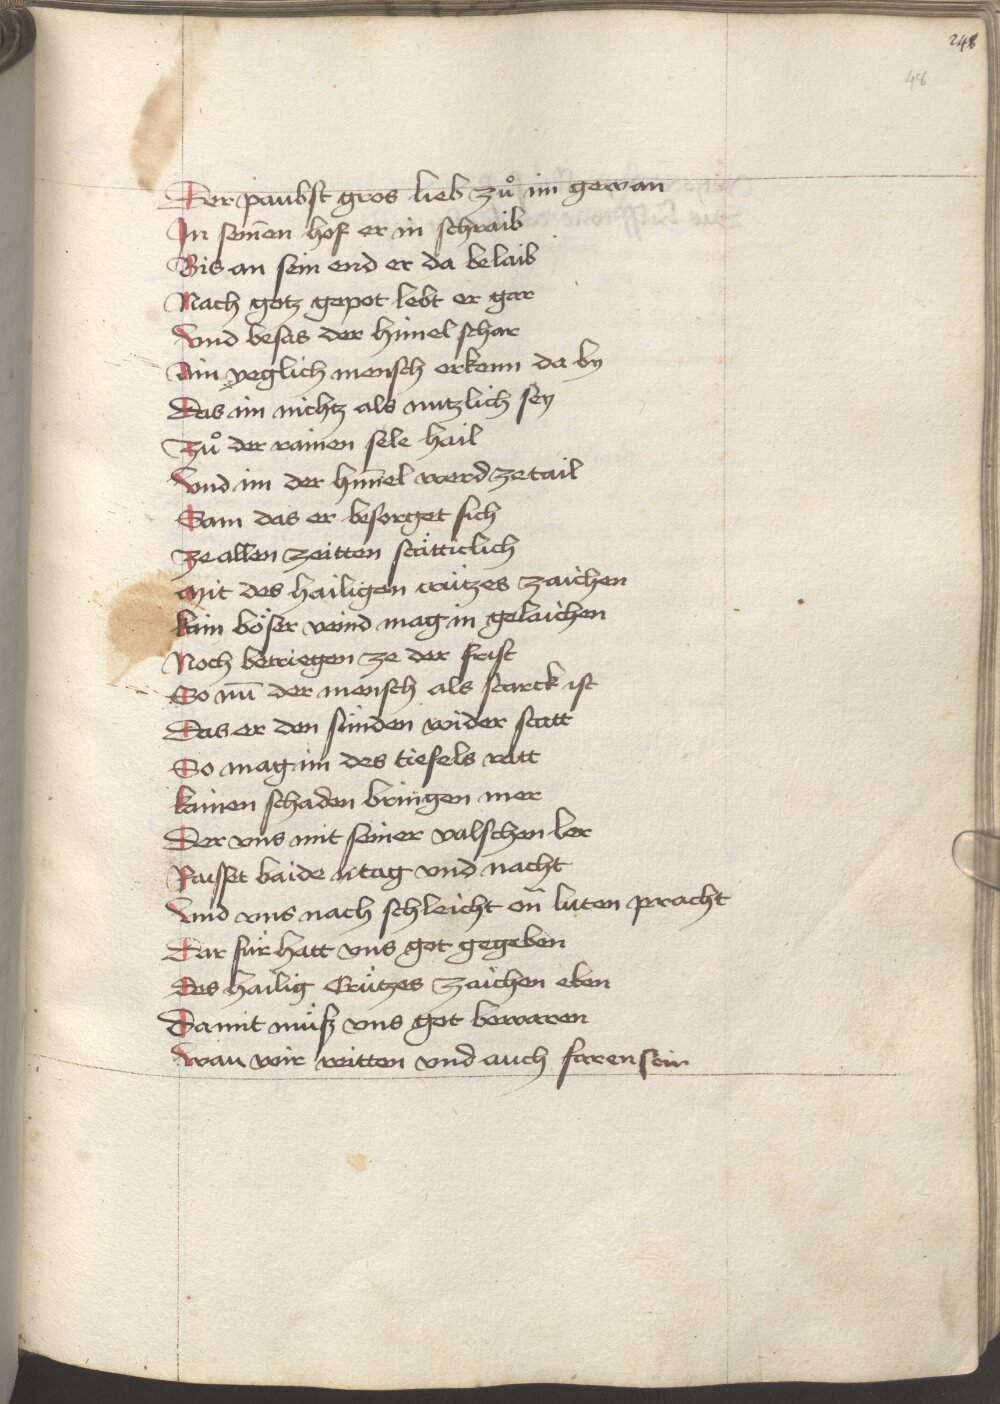 248
48
Der paubst gros lieb zuͦ im gewan
In seinen hof er in schraib
Bis an sein end er da belaib
Nach gotz gepot lebt er gar
Vnd besas der himel schar
Ain yeglich mensch erkenn da by
Das im nichtz als nutzlich sey
Zuͦ der rainen sele hail
Vnd im der himel werd ze tail
Sam das er besorget sich
Ze allen zeitten stätticlich
Mit des hailigen crützes zaichen
kain böser veind mag in gelaichen
Noch betriegen ze der frist
So nū der mensch als starck ist
Das er den sünden wider statt
So mag im des tiefels ratt
kainen schaden bringen mer
Der vns mit seiner valschen ler
Raisset baide tag vnd nacht
Vnd vns nach schleicht on̄ luten pracht
Dar für hatt vns got gegeben
Des hailig Crützes zaichen eben
Da mit müsz vns got bewaren
Wau wir ritten vnd auch faren sein